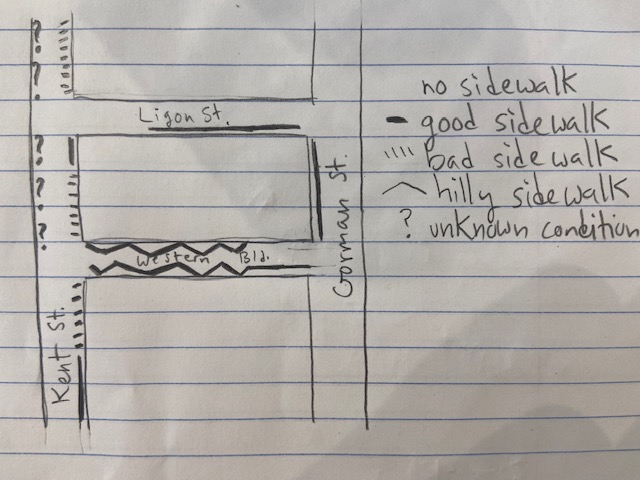 ?
?
?
Ligon St.
?
?
?
Gorman St.
Western Bld.
Kent St.
no sidewalk
good sidewalk
bad sidewalk
hilly sidewalk
? unknown condition